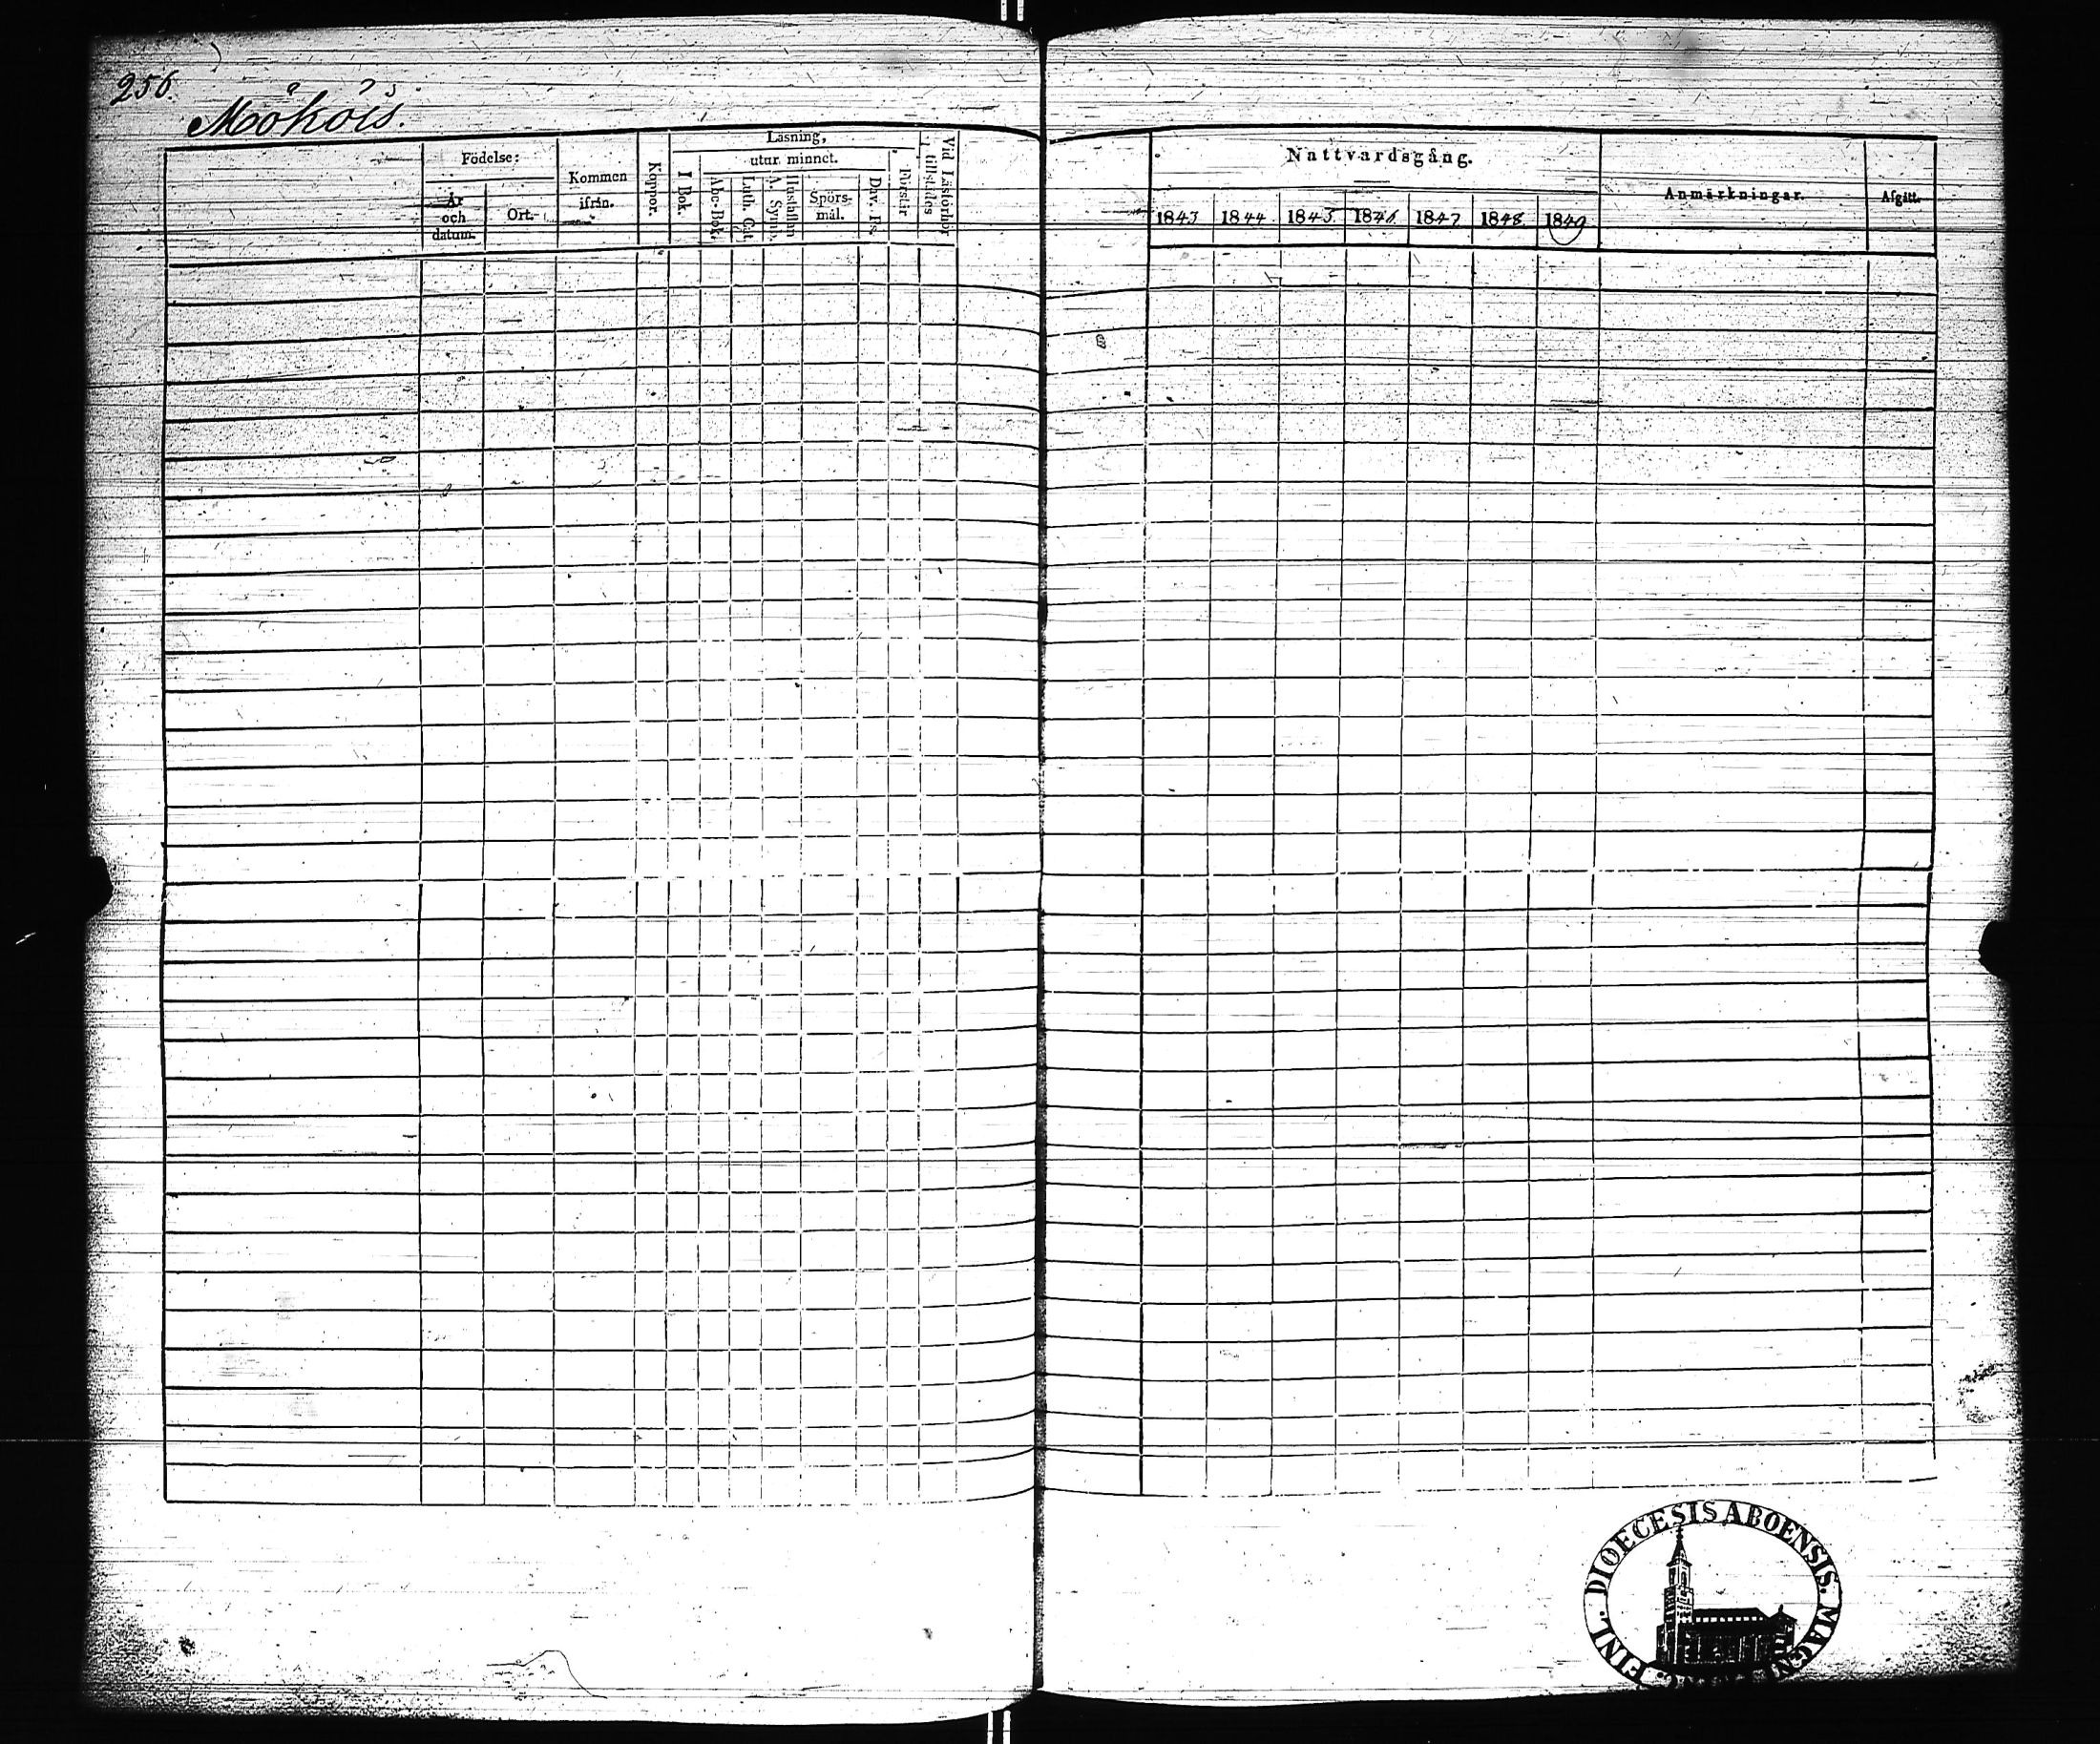 256.
Mököis.
Födelse:
År
och
datum.
Ort.
Kommen
ifrån.
Koppor.
Läsning,
I Bok.
utur minnet.
Abc-Bok.
Luth. Cat.
Hustaflan
A. Symb.
Spörs-
mål.
Dav. Ps.
Förstår
Vid Läsförhör
tillstädes
Nattvardsgång.
1843 1844 1845 1846 1847 1848 1849
Anmärkningar.
Afgått.
FINL. DIOECESIS ABOENSIS. MAGNI